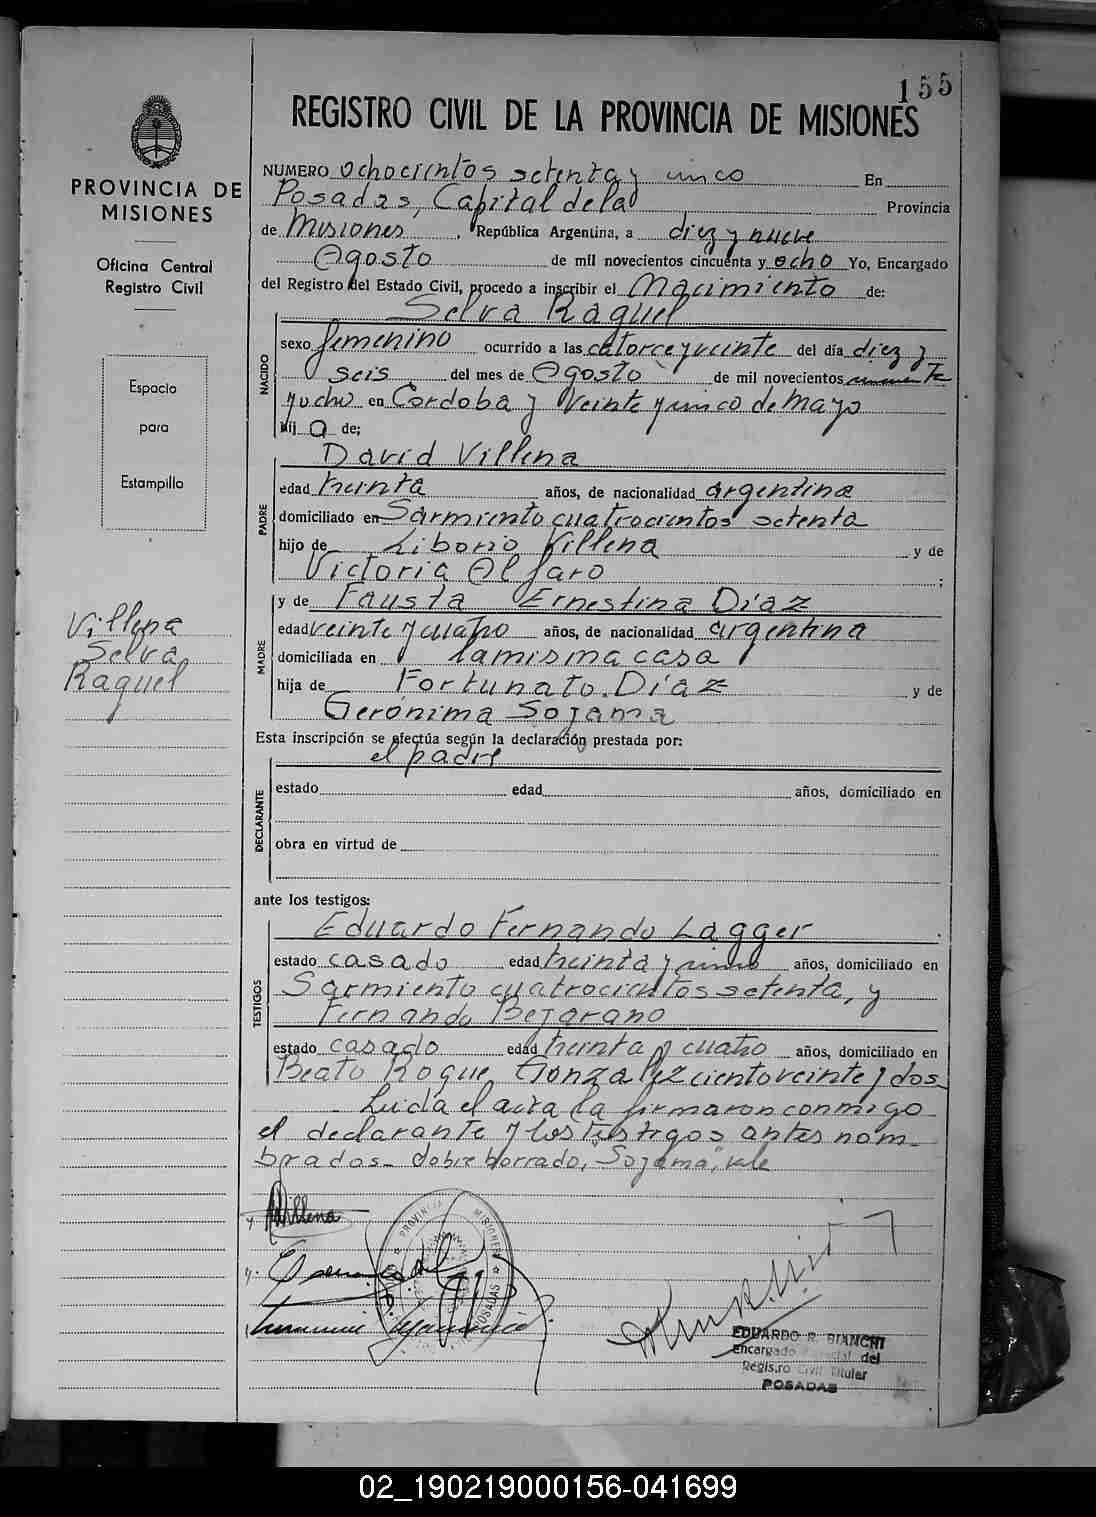 155
REGISTRO CIVIL DE LA PROVINCIA DE MISIONES
PROVINCIA DE
MISIONES
Oficina Central
Registro Civil
Espacio
para
Estampilla
Villena
Selva
Raquel
NUMERO ochocientos setenta y cinco En
Posadas, Capital de la Provincia
de Misiones, República Argentina, a diez y nueve
Agosto de mil novecientos cincuenta y ocho Yo, Encargado
del Registro del Estado Civil, procedo a inscribir el Nacimiento de:
Selva Raquel
NACIDO
sexo femenino ocurrido a las catorce y veinte del día diez y
seis del mes de Agosto de mil novecientos cincuenta
y ocho en Córdoba y Veinte y cinco de Mayo
hij a de;
David Villena
PADRE
edad treinta años, de nacionalidad argentina
domiciliado en Sarmiento cuatrocientos setenta
hijo de Liborio Villena y de
Victoria Alfaro;
MADRE
y de Fausta Ernestina Díaz
edad veinte y cuatro años, de nacionalidad argentina
domiciliada en la misma casa
hija de Fortunato Díaz y de
Gerónima Sojama
Esta inscripción se efectúa según la declaración prestada por:
el padre
DECLARANTE
estado edad años, domiciliado en
obra en virtud de
ante los testigos:
Eduardo Fernando Lagger
TESTIGOS
estado casado edad treinta y cinco años, domiciliado en
Sarmiento cuatrocientos setenta, y
Fernando Bejarano
estado casado edad treinta y cuatro años, domiciliado en
Beato Roque Gonzalez ciento veinte y dos
Leída el acta la firmaron conmigo
el declarante y los testigos antes nom-
brados- sobre borrado, "Sojama", vale
Villena
PROVINCIA MISIONES
POSADAS
EDUARDO R. BIANCHI
Encargado del
Registro Civil Titular
POSADAS
02_190219000156-041699